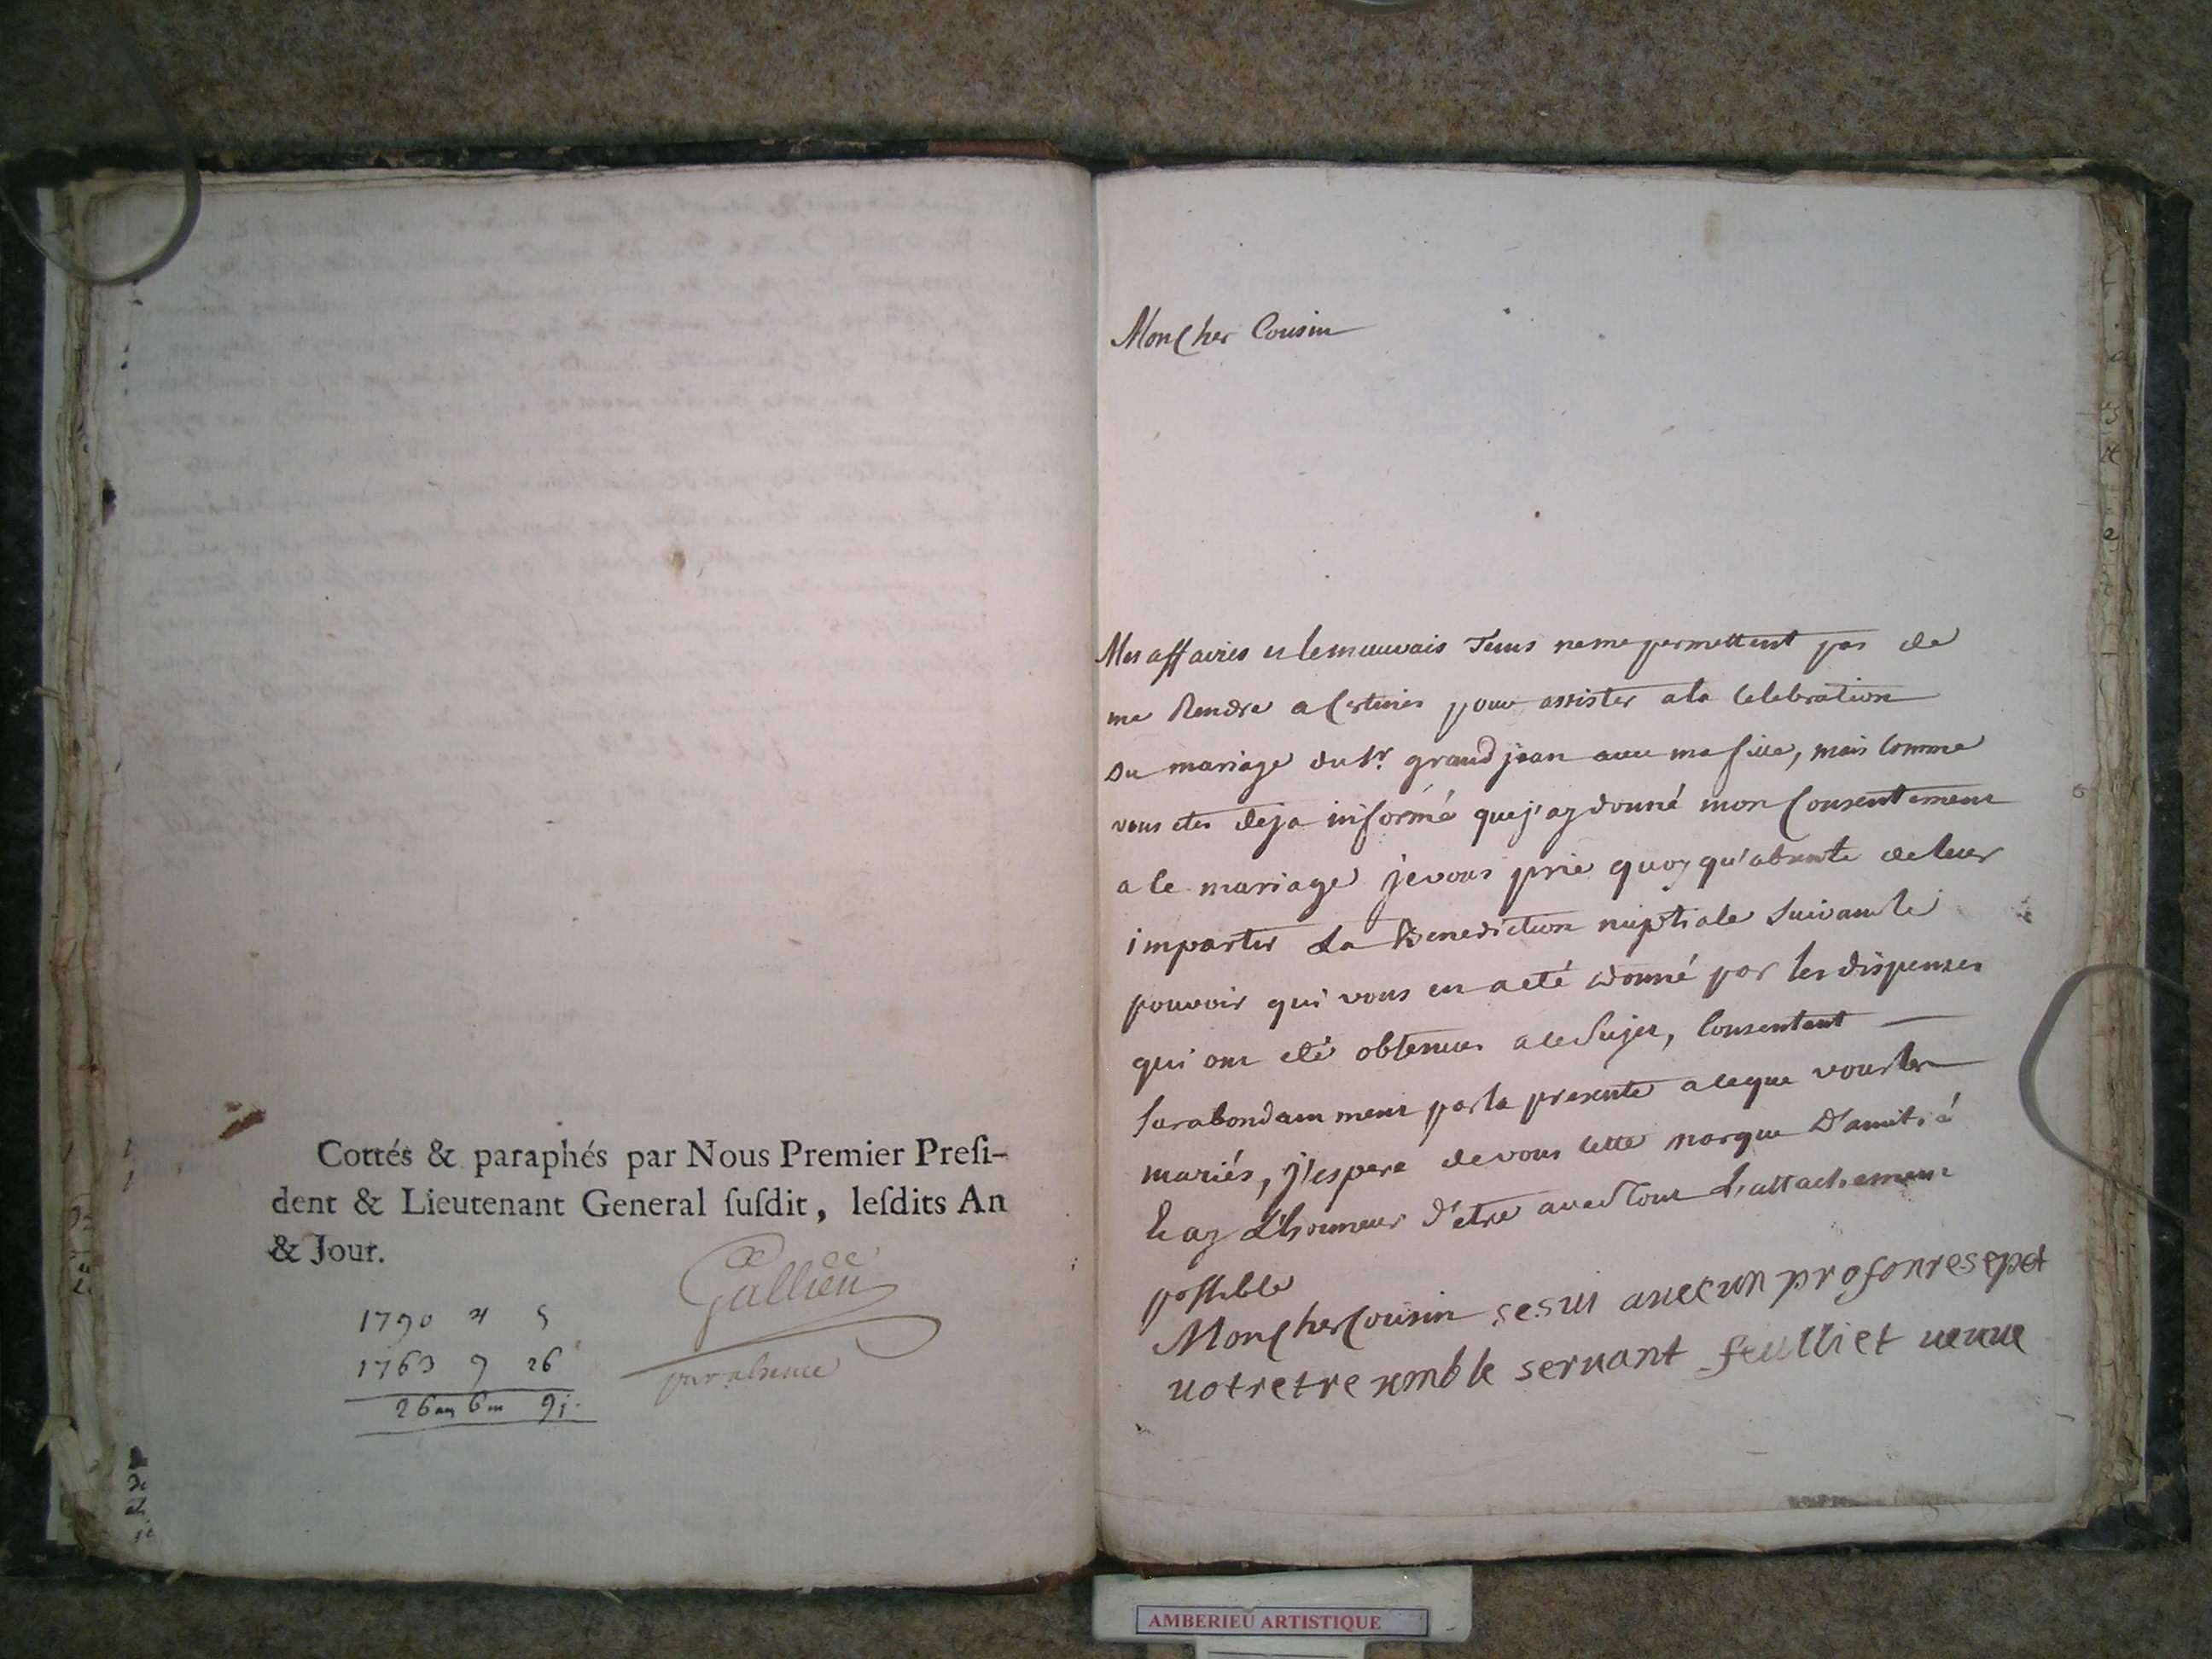 Cottés & paraphés par Nous Premier Preſi-
dent & Lieutenant General ſuſdit, leſdits An
& Jour.
Gallien
par absence
1790 4 5
1763 9 26
26 an 6 m 9 j.
Mon Cher Cousin
Mes affaires et le mauvais Tems ne me permettent pas de
me Rendre a Certines pour assister a la Celebration
Du mariage du Sr. grand jean avec ma fille, mais Comme
vous etes deja informé que j'ay donné mon Consentement
a Ce mariage je vous prie quoy qu'absente de leur
impartir La Benediction nuptiale Suivant le
pouvoir qui vous en a eté donné par les dispenses
qui ont eté obtenues a Ce Sujet, Consentant
Surabondamment par la presente a Ce que vous les
mariés, j'espere de vous Cette marque D'amitié
L'honneur d'etre avec Tout L'attachement
possible
Mon Cher Cousin se sui avec un profon resepet
votre tre xmble servant feulliet veuue
AMBERIEU ARTISTIQUE